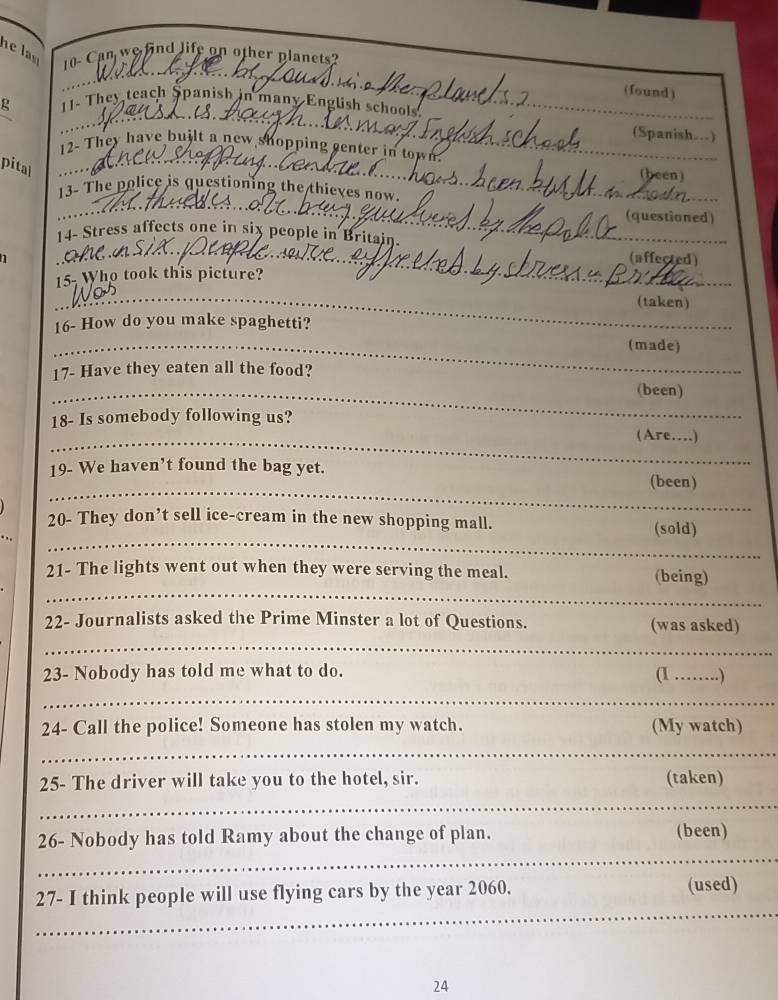 he last
10- Can we find life on other planets?
(found)
Will life be found in other planets?
g
11- They teach Spanish in many English schools.
(Spanish...)
Spanish is in many English schools
12- They have built a new shopping center in town.
(been)
pital
A new shopping has been built in town
13- The police is questioning the thieves now.
(questioned)
The are being by the police
14- Stress affects one in six people in Britain.
(affected)
n
one in six people by stress in
15- Who took this picture?
(taken)
Was
16- How do you make spaghetti?
(made)
17- Have they eaten all the food?
(been)
18- Is somebody following us?
(Are....)
19- We haven't found the bag yet.
(been)
)
20- They don't sell ice-cream in the new shopping mall.
(sold)
...
21- The lights went out when they were serving the meal.
(being)
22- Journalists asked the Prime Minster a lot of Questions.
(was asked)
23- Nobody has told me what to do.
(I ........)
24- Call the police! Someone has stolen my watch.
(My watch)
25- The driver will take you to the hotel, sir.
(taken)
26- Nobody has told Ramy about the change of plan.
(been)
27- I think people will use flying cars by the year 2060.
(used)
24